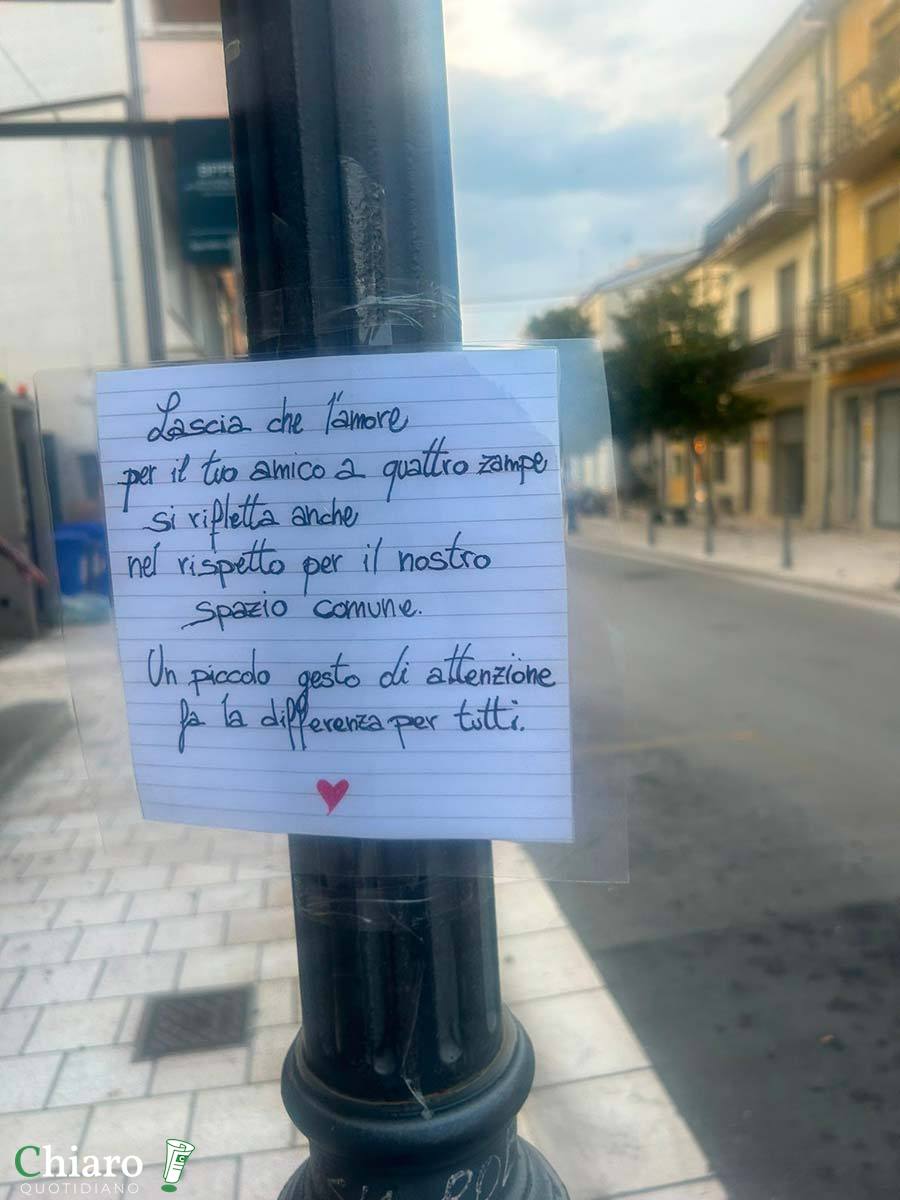 Lascia che l'amore
per il tuo amico a quattro zampe
si rifletta anche
nel rispetto per il nostro
spazio comune.
Un piccolo gesto di attenzione
fa la differenza per tutti.
Chiaro
QUOTIDIANO